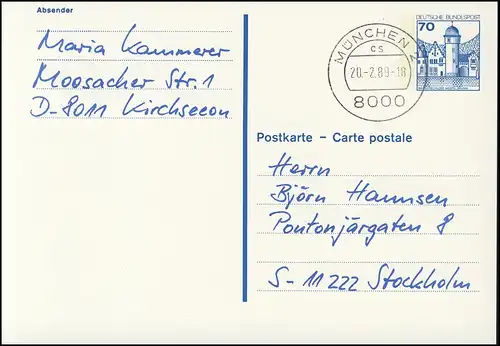 Absender
Maria Kammerer
Moosacher Str. 1
D-8011 Kirchseeon
DEUTSCHE BUNDESPOST
70
MÜNCHEN
cs
20.-2.89-18
8000
Postkarte – Carte postale
Herrn
Björn Hannsen
Pontonjärgaten 8
S-11222 Stockholm